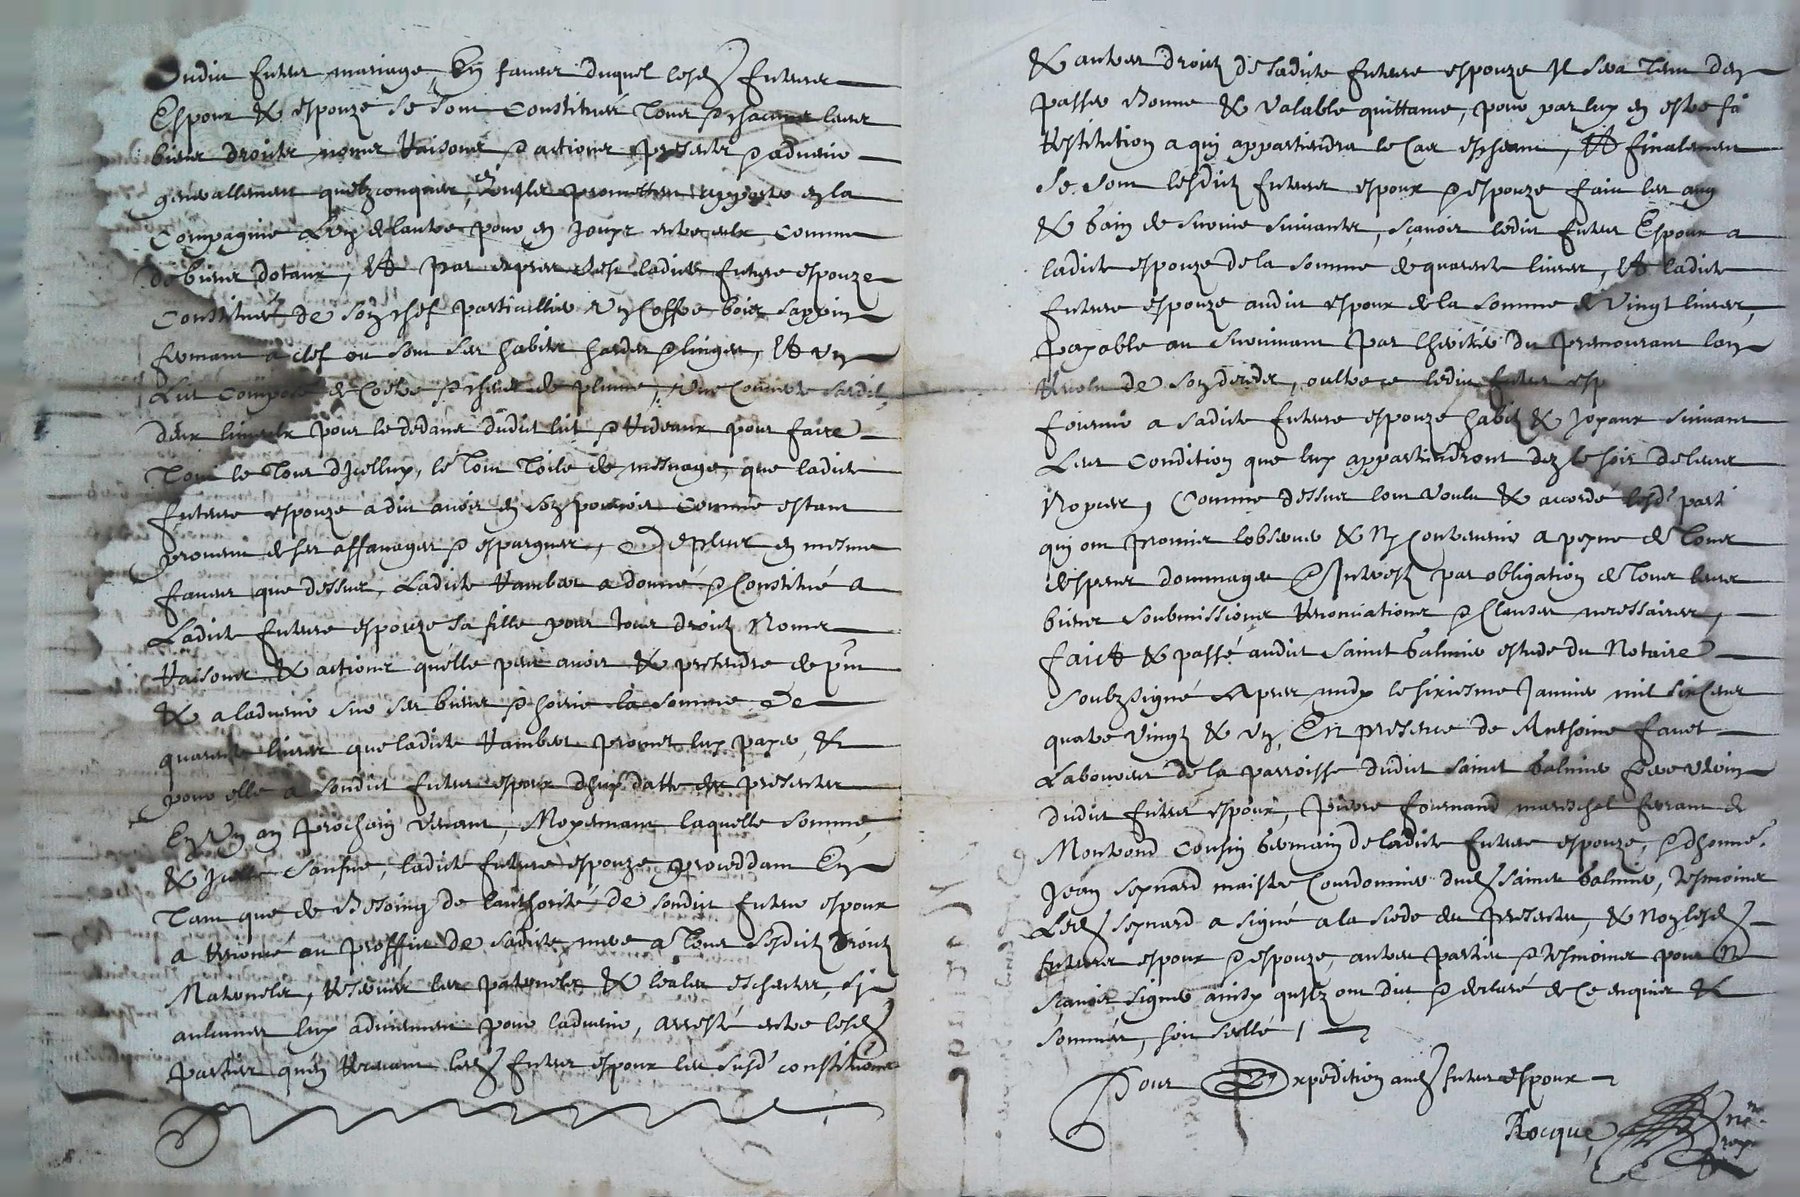 Dudit futur mariage, En faveur duquel lesd futurs
Espoux & espouze se sont Constitués Tous & chacuns leurs
biens droicts noms Raisons & actions presents & advenir
generallement quelzconques, promettent apporter en la
Compagnie L'un de lautre pour en Jouyr entre eulx comme
de biens dotaux, Et par expres s'est ladicte future espouze
Constitué de son chef particullier un Coffre bois sappin
fermant a clef ou sont ses habits hardes & linges, Et un
Lict Composé de Coitre & chevet de plume, une Couverte
deux linceulx pour le dedans dudit lict & Rideaux pour faire
Tout le Tour d'Icelluy, le Tout Toile de mesnage, que ladicte
future espouze a dit avoir en son pouvoir comme estant
provenu de ses affanages & espargnes, Et de plus en mesme
faveur que dessus, Ladicte Rambert a donné & Constitué a
Ladicte future espouze sa fille pour tous droicts Noms
Raisons & actions quelle peut avoir & pretendre de pnt
& a ladvenir sur ses biens & hoirie la somme De
quarante livres que ladicte Rambert promet luy payer &
pour elle a sondict futur espoux dhuy datte des presentes
En Un an prochain Venant, Moyennant laquelle somme
& Icelle saufve, ladicte future espouze proceddant En
Tant que de Besoing de lauthorité de sondit futur espoux
a Renoncé au proffit de sadicte mere a Tous sesdicts droicts
Maternels, reservés les paternels & loyales escheutes, sy
aulcunes luy adviennent pour ladvenir, arresté entre lesd
parties quen Recevant led futur espoux les susd constitutions
& autres droicts de sadicte future espouze Il sera Tenu d'en
passer Bonne & Valable quittance, pour par luy en estre fa
Restitution a qui appartiendra le Cas escheant, Et finalement
Se sont lesdicts futurs espoux & espouze faict les aug
& gain de survie suivants, sçavoir ledit futur Espoux a
ladicte espouze de la somme de quarante livres, Et ladicte
future espouze audit espoux de la somme de Vingt livres,
payable au survivant par lheritier du premourant lan
Revolu de son deceds, oultre ce ledit futur esp
fournir a sadicte future espouze habits & Joyaux suivant
Leur Condition que luy appartiendront dez le soir de leurs
Nopces, Comme dessus lont Voulu & accordé lesd parti
qui ont promis lobserver & Ny Contrevenir a peyne de Tous
despens dommages & Interestz par obligation de Tous leurs
biens soubmissions Renonciations & Clauses necessaires,
faict & passé audit Sainct Galmier estude du Notaire
soubzsigné Apres midy le sixiesme Janvier mil six Cens
quatre Vingtz & Un, En presence de Anthoine Favet
Laboureur de la parroisse dudit Sainct Galmier frere Uterin
dudit futur espoux, Pierre Fournand mareschal ferrant de
Montrond Cousin Germain de ladicte future espouze, & dhonneste
Jean Seynard maistre Courdonnier dud Sainct Galmier, tesmoins
Led Seynard a signé a la Cede des presentes, & Non lesd
futurs espoux & espouze, autres parties & tesmoins pour ne
sçavoir signer ainsy quilz ont dit & declaré de Ce enquis &
sommés, soit seellé
Pour Expedition aud futur espoux
Rocque